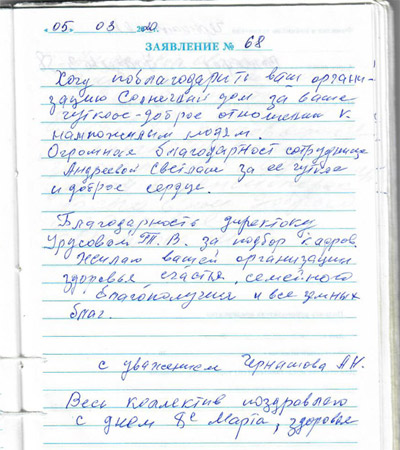 05. 03. 20
ЗАЯВЛЕНИЕ № 68
Хочу поблагодарить ваш органи-
зацию Солнечный дом за ваше
чуткое-доброе отношении к
нам пожилым людям.
Огромная благодарност сотруднице
Андреевой Светлане за её чуткое
и доброе сердце.
Благодарность директору
Урусовой Т. В. за подбор кадров.
Желаю вашей организации
здоровья счастья, семейного
благополучия и все умных
благ.
с уважением А.Н.
Весь коллектив поздравляю
с днем 8с Марта, здоровье